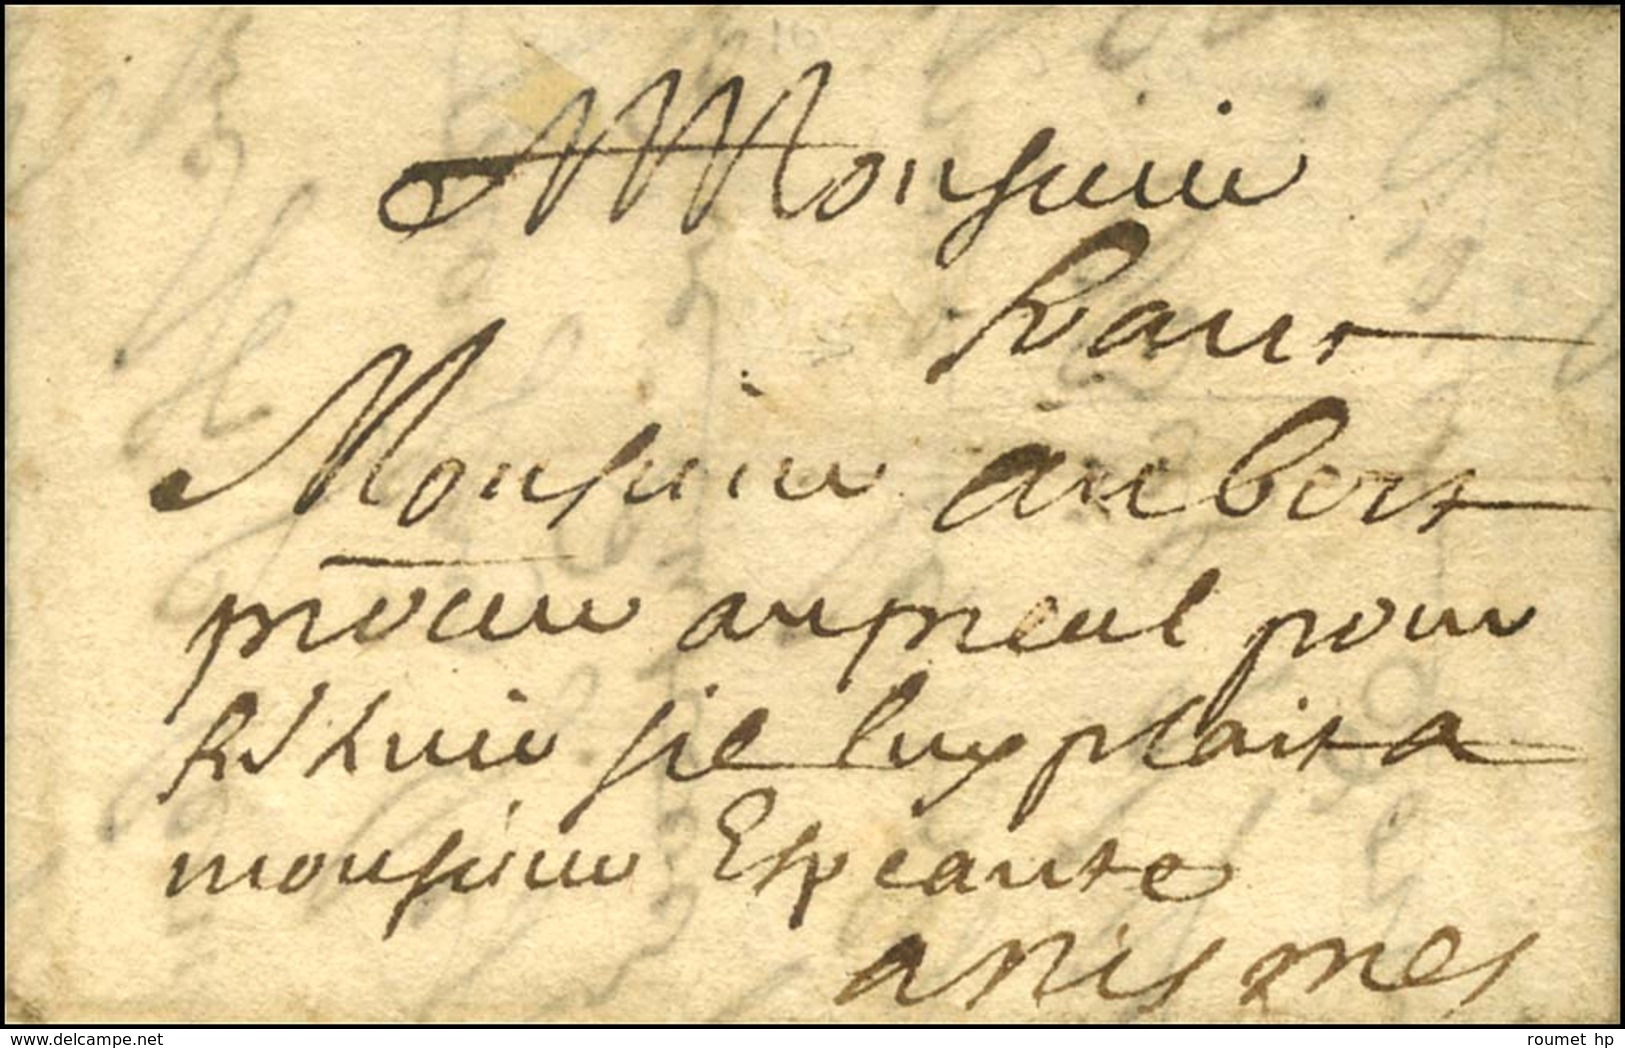 Monsieur
Monsieur aubert
procur au presid pour
rendre sil luy plait a
monsieur Espeante
a nismes
www.delcampe.net
roumet hp